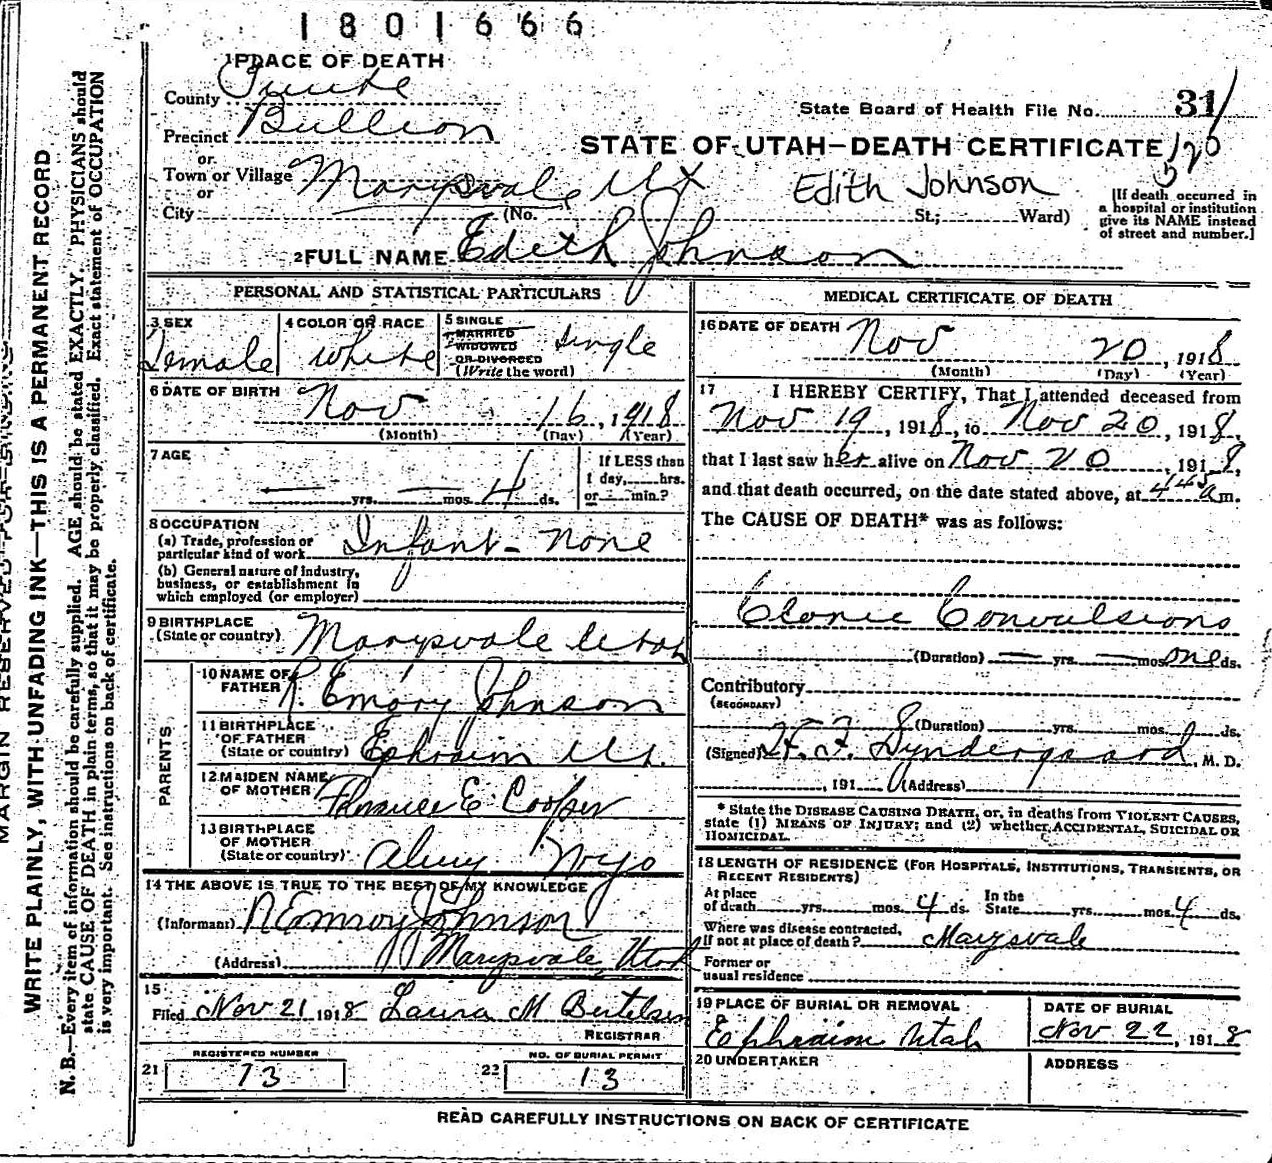 1801666
1 PLACE OF DEATH
County Piute
State Board of Health File No. 31
Precinct Bullion
STATE OF UTAH—DEATH CERTIFICATE 120
or
Town or Village Marysvale Ut Edith Johnson
or
City (No. St.; Ward)
[If death occurred in
a hospital or institution
give its NAME instead
of street and number.]
2 FULL NAME Edith Johnson
PERSONAL AND STATISTICAL PARTICULARS
3 SEX Female
4 COLOR OR RACE White
5 SINGLE
MARRIED
WIDOWED
OR DIVORCED
(Write the word) Single
6 DATE OF BIRTH Nov 16, 1918
(Month) (Day) (Year)
7 AGE — yrs. — mos. 4 ds.
If LESS than
1 day, hrs.
or min.?
8 OCCUPATION
(a) Trade, profession or
particular kind of work Infant - none
(b) General nature of industry,
business, or establishment in
which employed (or employer)
9 BIRTHPLACE
(State or country) Marysvale Utah
PARENTS
10 NAME OF
FATHER R. Emory Johnson
11 BIRTHPLACE
OF FATHER
(State or country) Ephraim Ut.
12 MAIDEN NAME
OF MOTHER Florence E. Cooper
13 BIRTHPLACE
OF MOTHER
(State or country) Almy Wyo
14 THE ABOVE IS TRUE TO THE BEST OF MY KNOWLEDGE
(Informant) R Emroy Johnson
(Address) Marysvale, Utah
15
Filed Nov 21 1918 Laura M Bertelsen
REGISTRAR
21 REGISTERED NUMBER 13
22 NO. OF BURIAL PERMIT 13
MEDICAL CERTIFICATE OF DEATH
16 DATE OF DEATH Nov 20, 1918
(Month) (Day) (Year)
17 I HEREBY CERTIFY, That I attended deceased from
Nov 19, 1918, to Nov 20, 1918,
that I last saw her alive on Nov 20, 1918,
and that death occurred, on the date stated above, at 4 45 a m.
The CAUSE OF DEATH* was as follows:
Clonic Convulsions
(Duration) — yrs. — mos. one ds.
Contributory
(SECONDARY)
(Duration) yrs. mos. ds.
(Signed) Syndergaard, M. D.
, 191 (Address)
* State the DISEASE CAUSING DEATH, or, in deaths from VIOLENT CAUSES,
state (1) MEANS OF INJURY; and (2) whether, ACCIDENTAL, SUICIDAL OR
HOMICIDAL.
18 LENGTH OF RESIDENCE (FOR HOSPITALS, INSTITUTIONS, TRANSIENTS, OR
RECENT RESIDENTS)
At place
of death yrs. mos. 4 ds.
In the
State yrs. mos. 4 ds.
Where was disease contracted,
If not at place of death? Marysvale
Former or
usual residence
19 PLACE OF BURIAL OR REMOVAL
Ephraim Utah
DATE OF BURIAL
Nov 22, 1918
20 UNDERTAKER
ADDRESS
READ CAREFULLY INSTRUCTIONS ON BACK OF CERTIFICATE
MARGIN RESERVED FOR BINDING
WRITE PLAINLY, WITH UNFADING INK—THIS IS A PERMANENT RECORD
N. B.—Every item of information should be carefully supplied. AGE should be stated EXACTLY. PHYSICIANS should
state CAUSE OF DEATH in plain terms, so that it may be properly classified. Exact statement of OCCUPATION
is very important. See instructions on back of certificate.